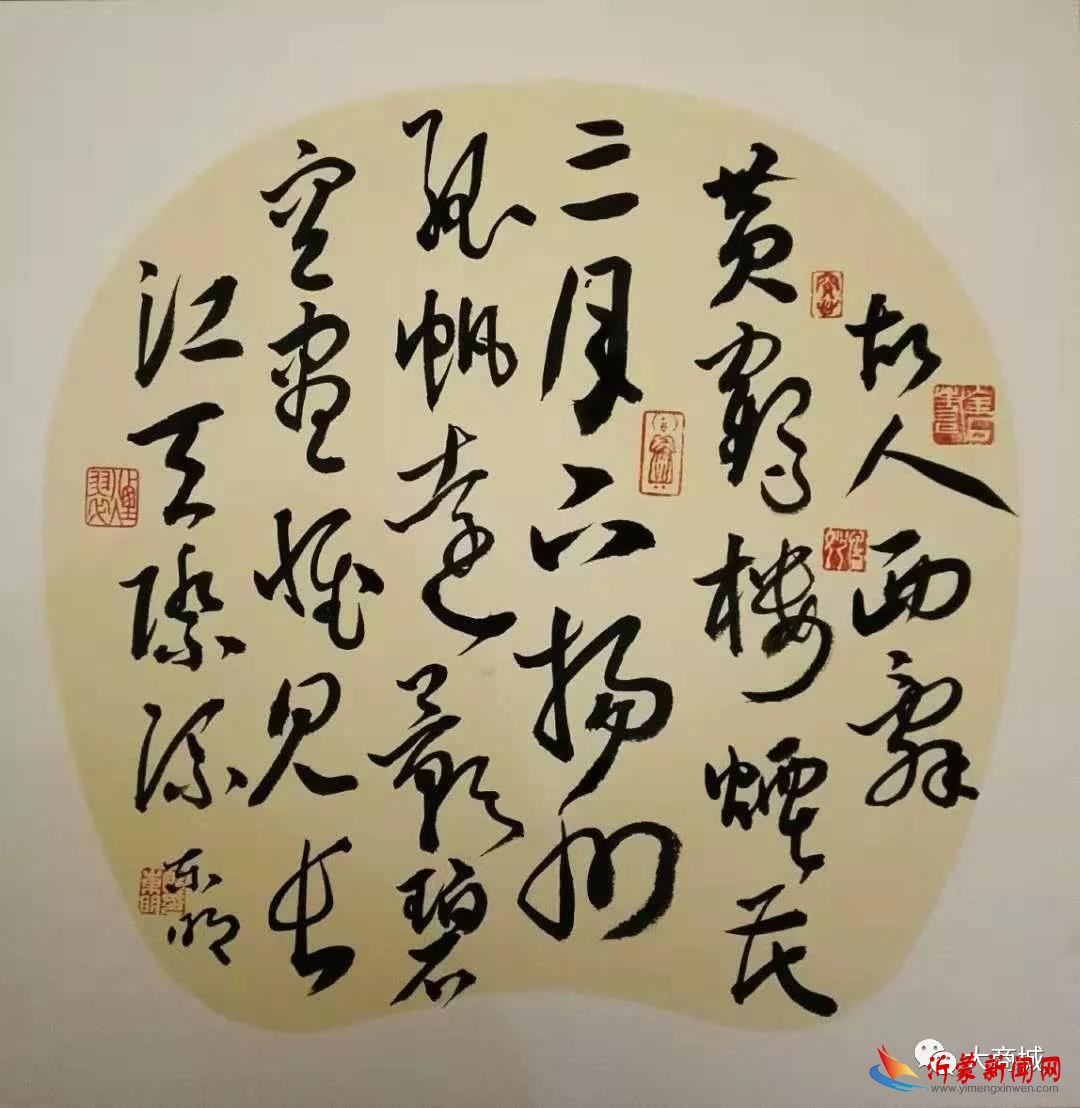 故人西辞
黄鹤楼煙花
三月下揚州
孤帆遠影碧
空盡惟見長
江天際流
东明
大商城
沂蒙新闻网
www.yimengxinwen.com